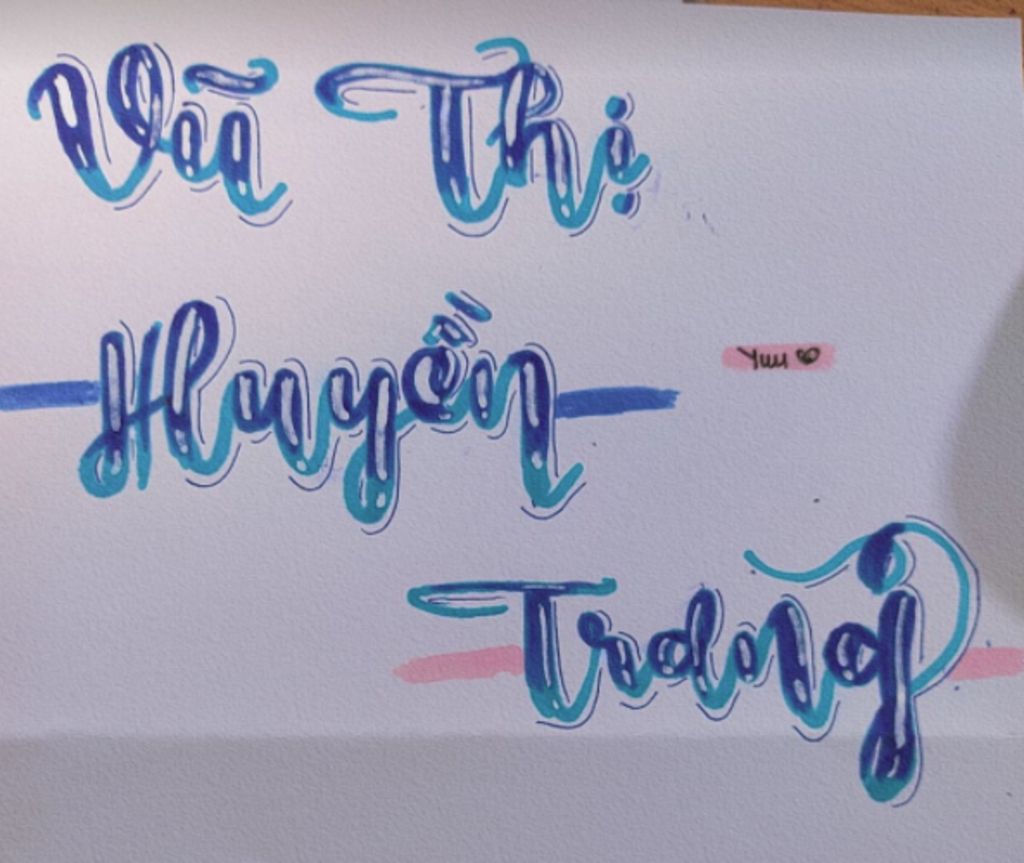 Vũ Thị
Huyền
Yuu
Trang